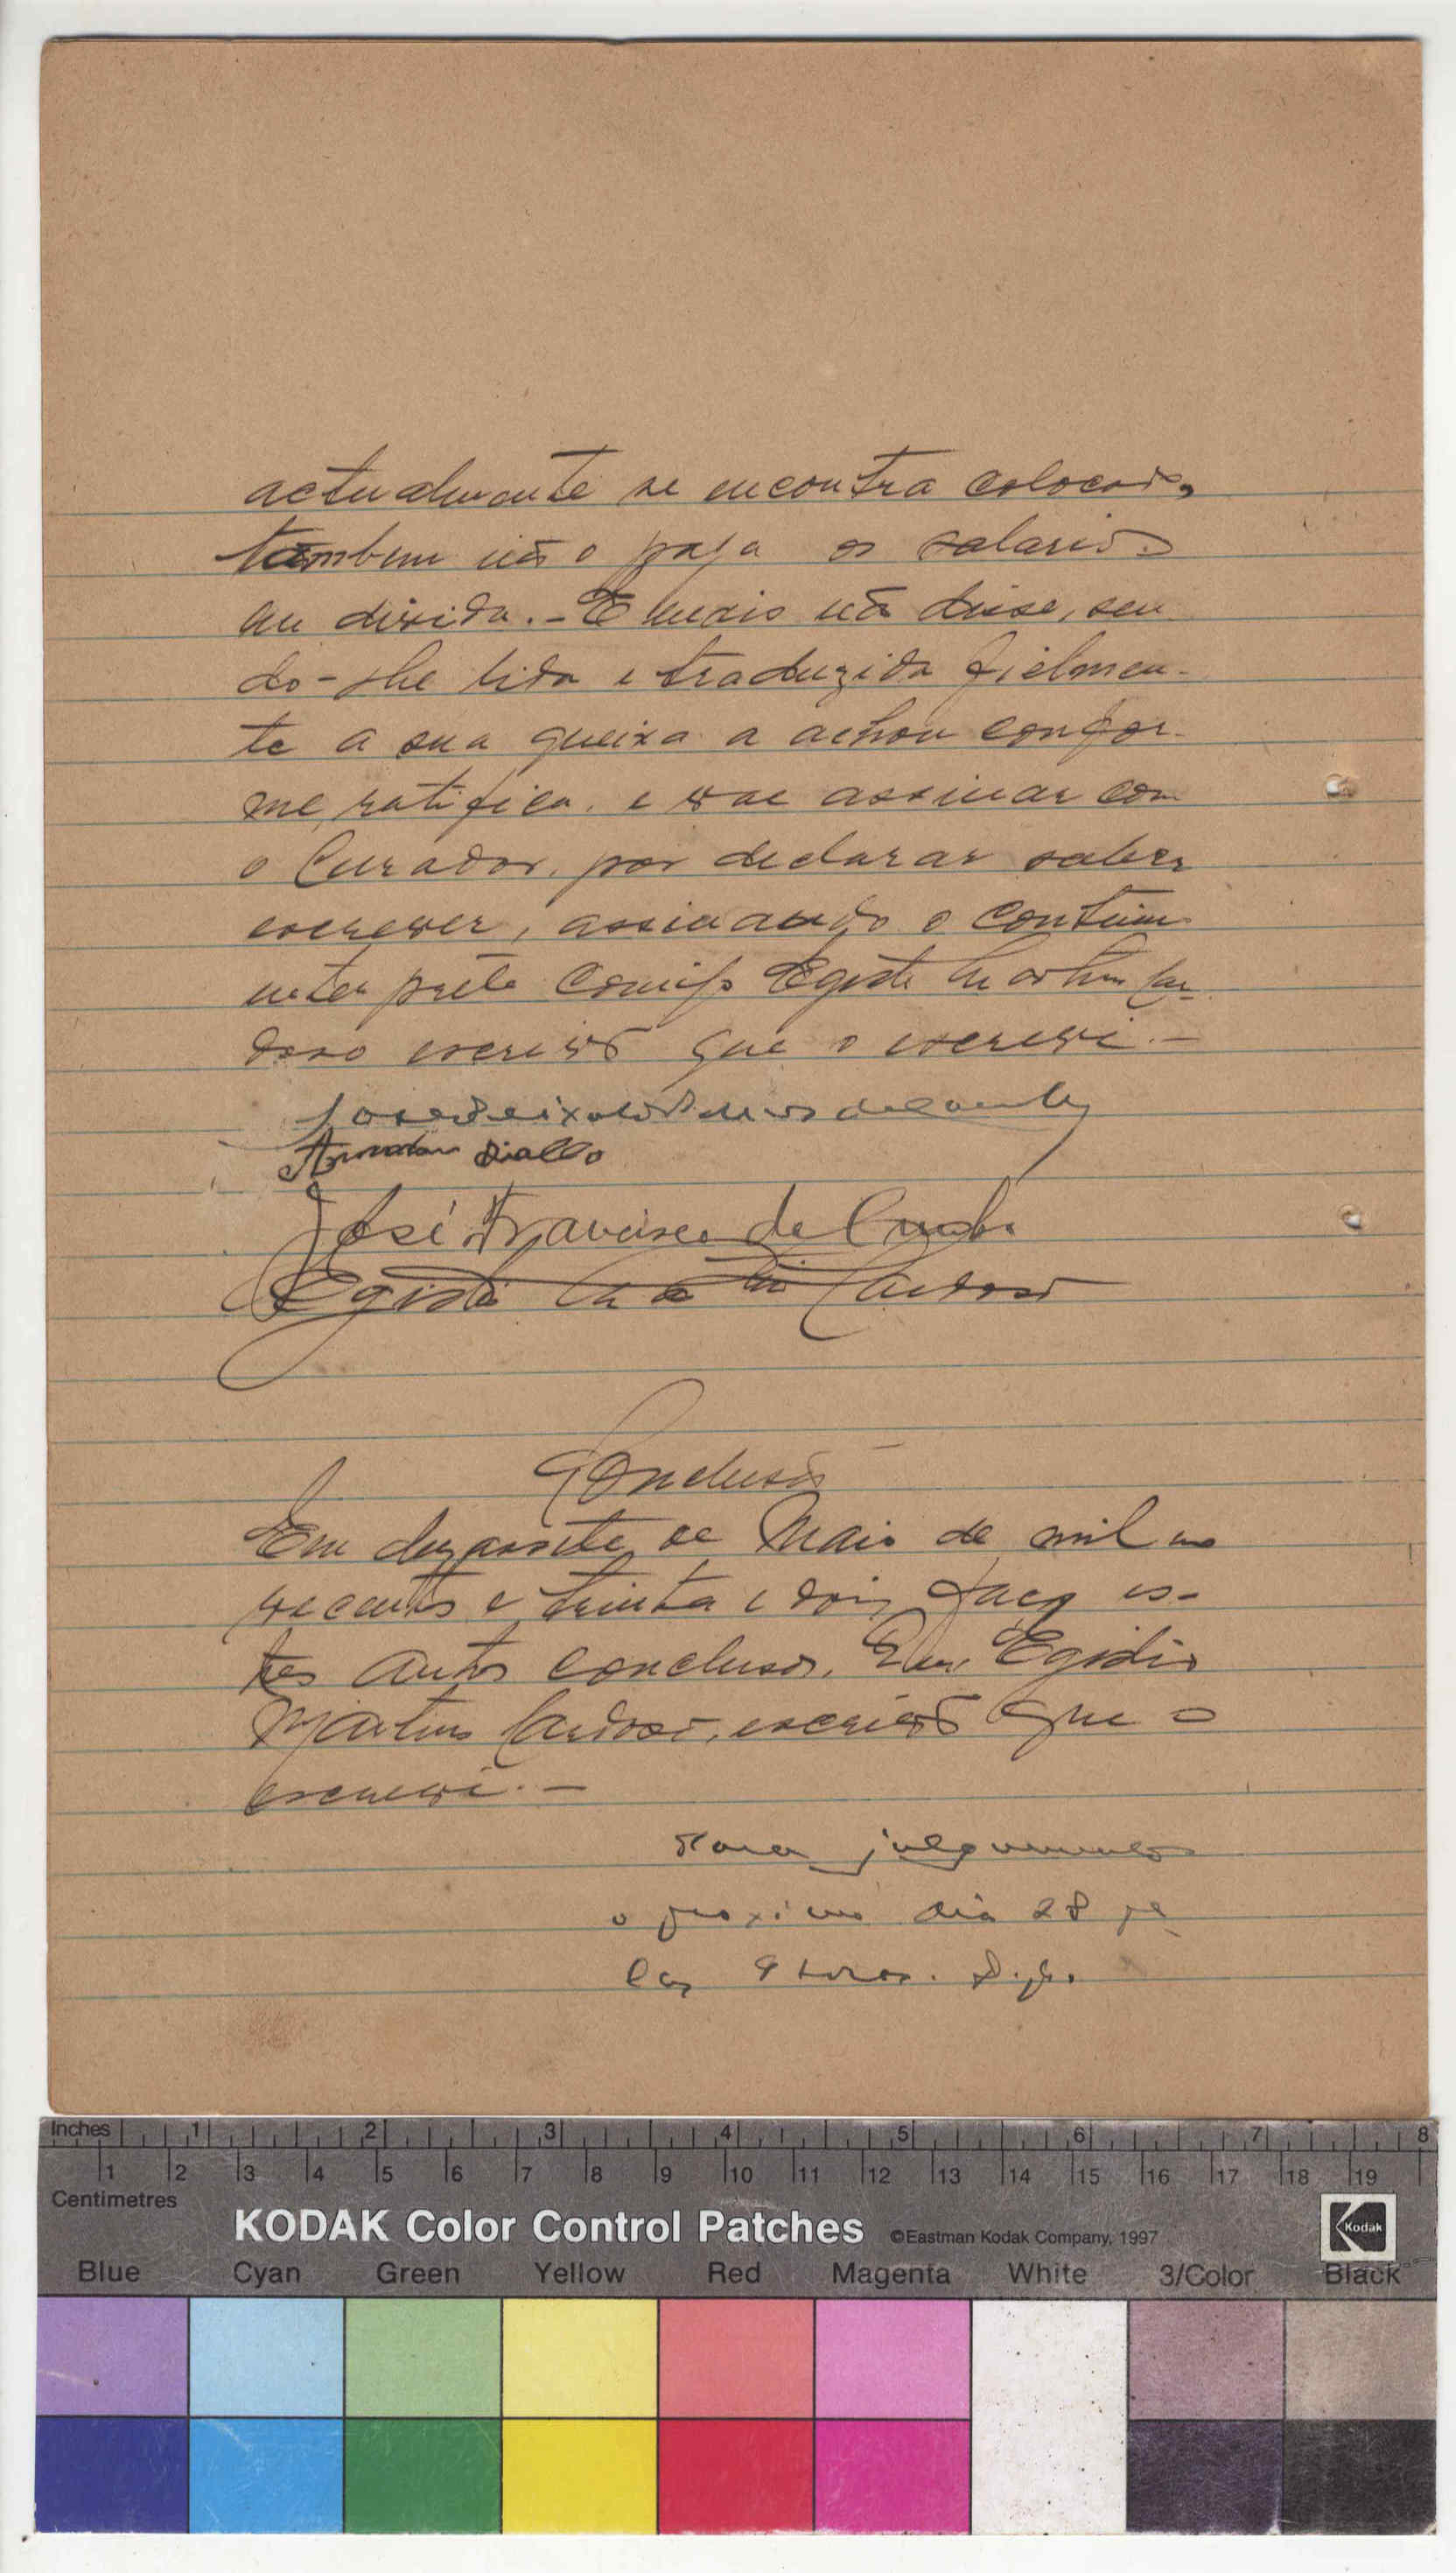 actualmente se encontra colocado,
tambem não o paga os salarios
em divida. - E mais não disse, sen
do-lhe lida e traduzida fielmen-
te a sua queixa a achou confor-
me, ratifica, e vae assinar com
o Curador, por declarar saber
escrever, assinando o
comigo Egidio Martins Car-
doso escrivão que o escrevi. -
José Peixoto
Amadou Diallo
José Francisco da Cunha
Egidio Martins Cardoso
Conclusão
Em dezassete de Maio de mil no
vecentos e trinta e dois faço es-
tes autos conclusos. Eu, Egidio
Martins Cardoso, escrivão que o
escrevi. -
Para julgamento
o proximo dia 28 pe
las 9 horas.
Inches 1 2 3 4 5 6 7 8
1 2 3 4 5 6 7 8 9 10 11 12 13 14 15 16 17 18 19
Centimetres
KODAK Color Control Patches ©Eastman Kodak Company, 1997 Kodak
Blue Cyan Green Yellow Red Magenta White 3/Color Black